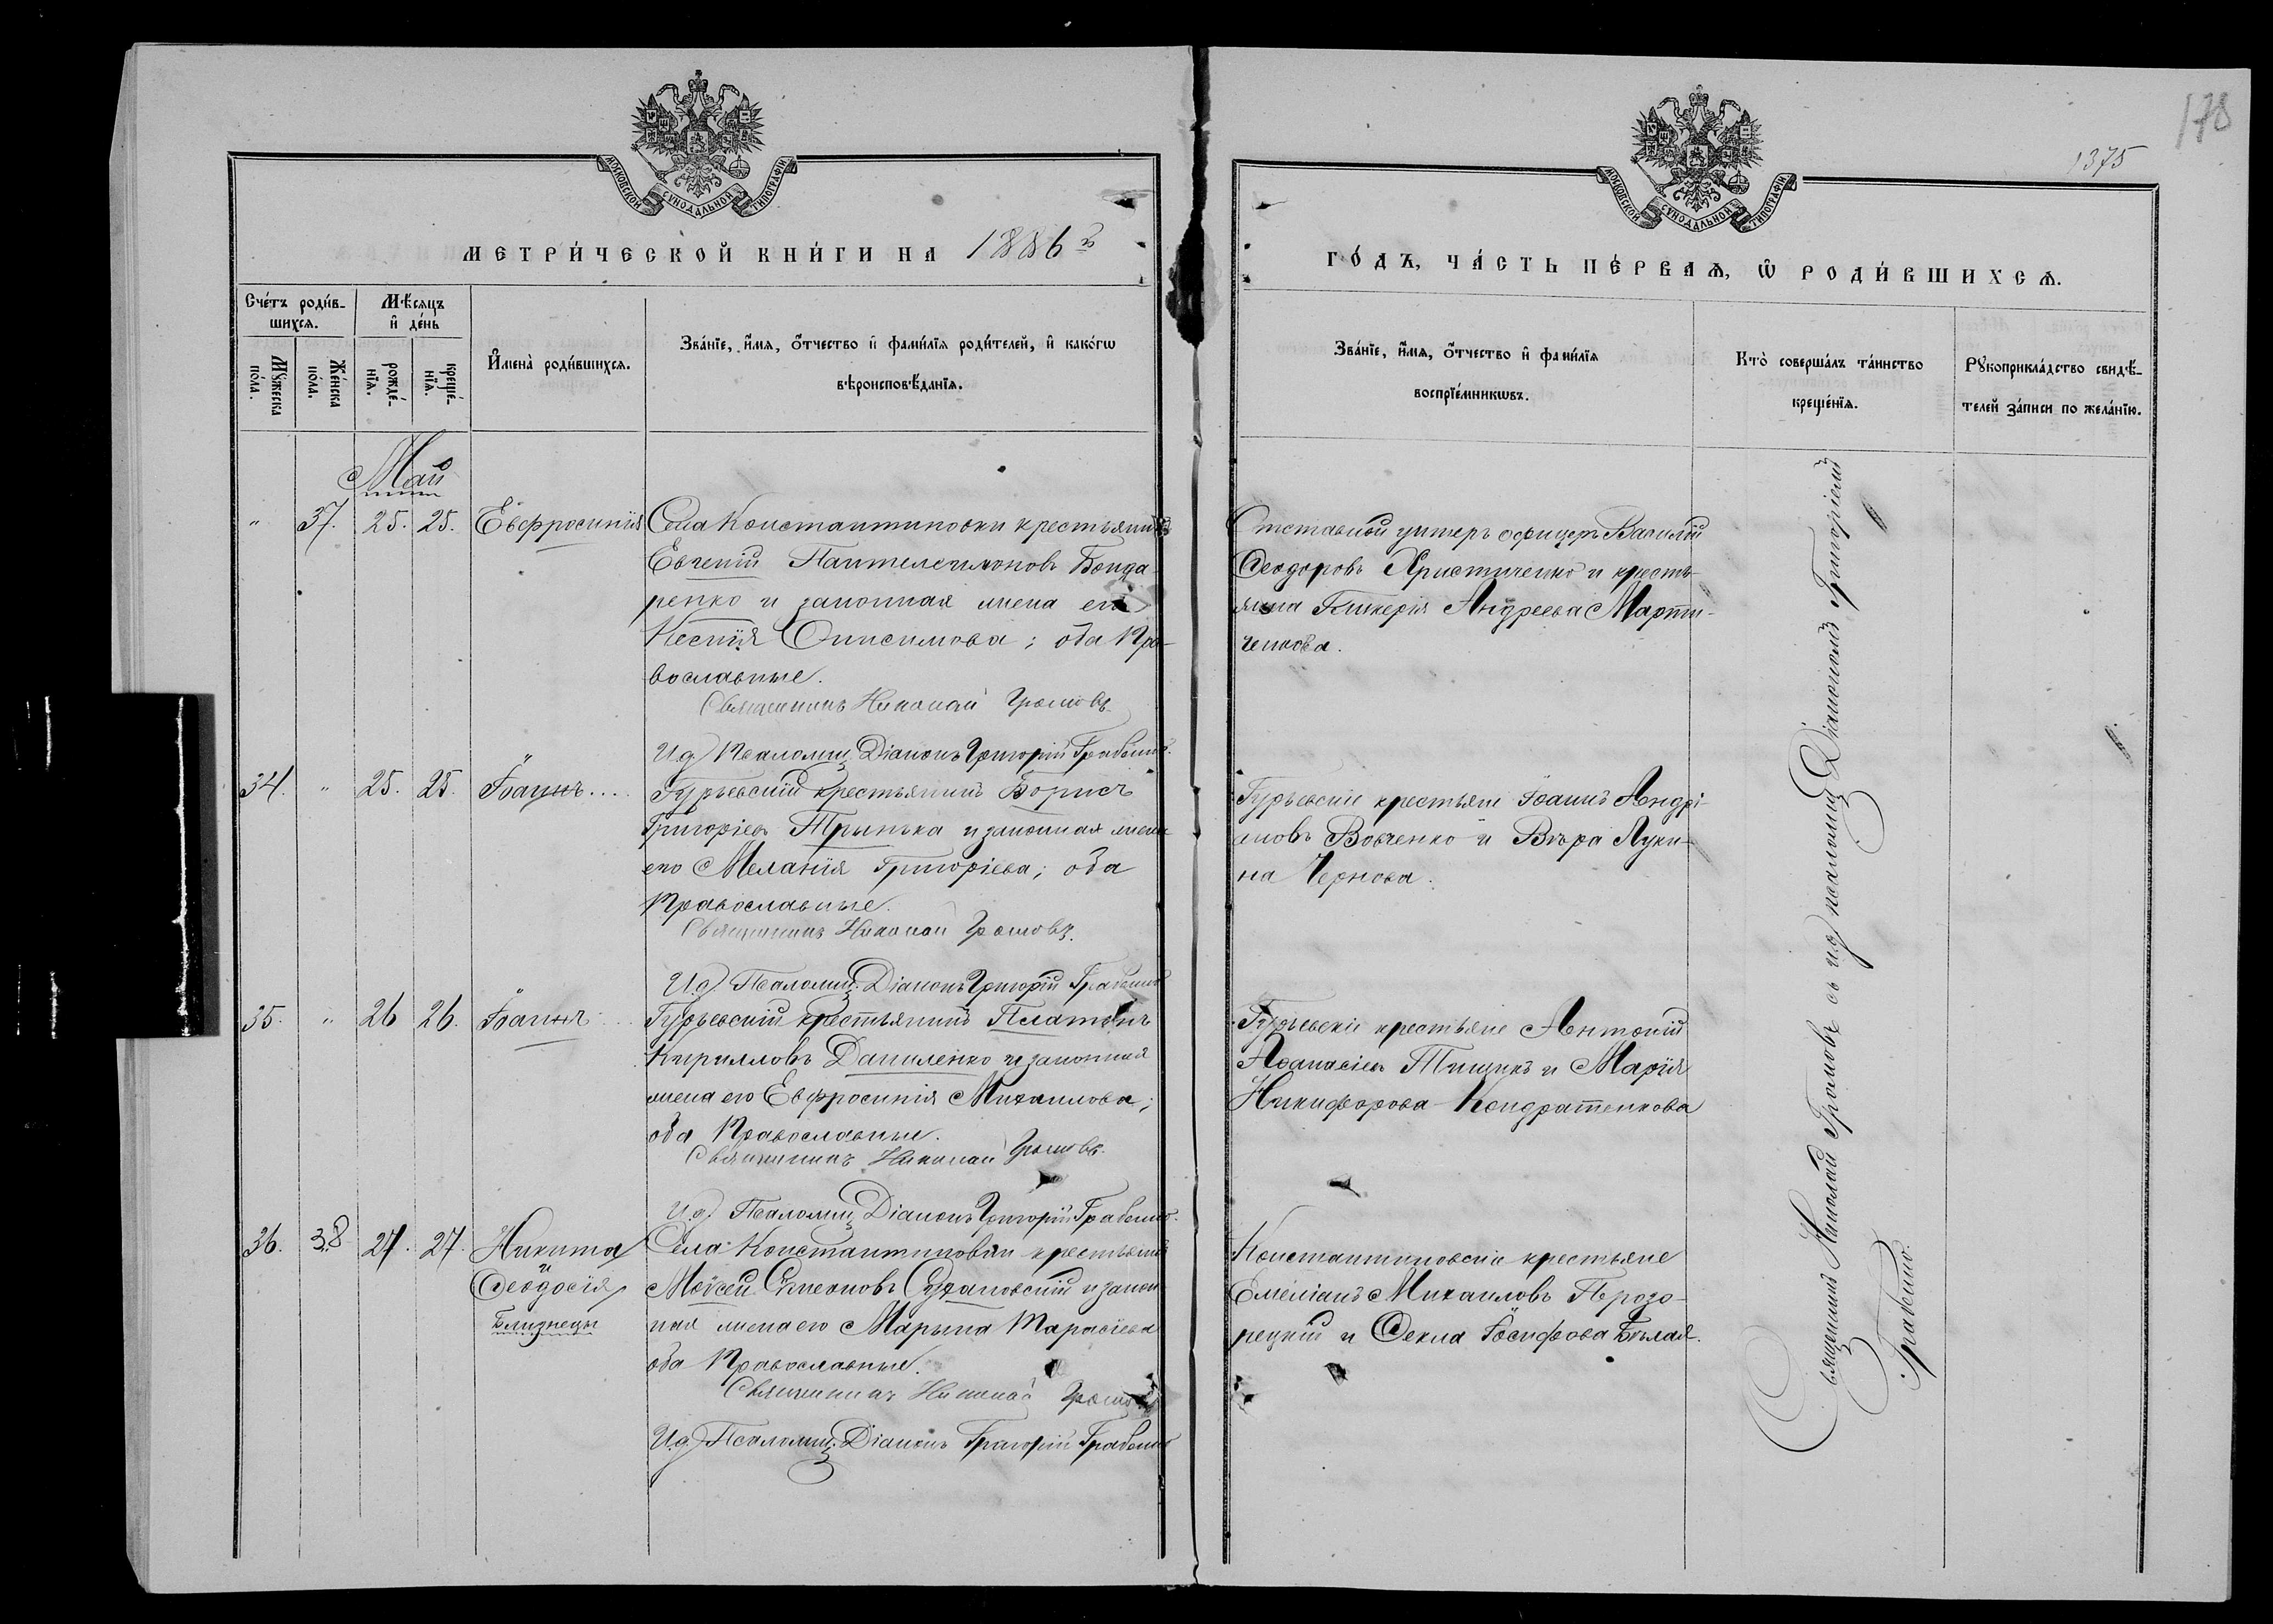 178
1375
МОСКОВСКОЙ СѴНОДАЛЬНОЙ ТИПОГРАФІИ
МОСКОВСКОЙ СѴНОДАЛЬНОЙ ТИПОГРАФІИ
МЕТРИ́ЧЕСКОЙ КНИ́ГИ НА 1886й
ГО́ДЪ, ЧА́СТЬ ПЕ́РВАѦ, Ѿ РОДИ́ВШИХСѦ.
Сче́тъ роди́в-
шихсѧ.
Мꙋ́жеска по́ла.
Же́нска по́ла.
Мѣ́сѧцъ
и҆ де́нь
рожде́-
нїѧ.
креще́-
нїѧ.
И҆мена̀ роди́вшихсѧ.
Зва́нїе, и҆́мѧ, ѻ҆́тчество и҆ фами́лїѧ роди́телей, и҆ како́гѡ
вѣроисповѣ́данїѧ.
Зва́нїе, и҆́мѧ, ѻ҆́тчество и҆ фами́лїѧ
воспрїе́мникѡвъ.
Кто̀ соверша́лъ та́инство
креще́нїѧ.
Рꙋкоприкла́дство свидѣ́-
телей за́писи по жела́нїю.
Май
" 37. 25. 25. Евфросинія
Села Константиновки крестьянинъ
Евгеній Пантелеимоновъ Бонда-
ренко и законная жена его
Ксенія Онисимова; оба Пра-
вославные.
Священникъ Николай Громовъ
И.д. Псаломщ. Діаконъ Григорій
Отставной унтеръ офицеръ Василій
Ѳеодоровъ Христиченко и кресть-
янка Гликерія Андреева Марти-
ченкова.
34. " 25. 25. Іоаннъ...
Гурьевскій крестьянинъ Борисъ
Григоріевъ Трынька и законная жена
его Меланія Григоріева; оба
Православные.
Священникъ Николай Громовъ.
И.д. Псаломщ. Діаконъ Григорій
Гурьевскіе крестьяне Іоаннъ Андрі-
яновъ Вовченко и Вѣра Луки-
на Чернова.
35. " 26 26. Іоаннъ
Гурьевскій крестьянинъ Платонъ
Кирилловъ Даниленко и законная
жена его Евфросинія Михаилова;
оба Православные.
Священникъ Николай Громовъ.
И.д. Псаломщ. Діаконъ Григорій
Гурьевскіе крестьяне Антоній
Аѳанасіевъ Тищикъ и Марія
Никифорова Кондратенкова
36. 38 27. 27. Никита
и
Ѳеодосія
Близнецы
Села Константиновки крестьянинъ
Моѵсей Симеоновъ Сухановскій и закон-
ная жена его Марына Тарасіева
оба Православные.
Священникъ Николай Громовъ
И.д. Псаломщ. Діаконъ Григорій
Константиновскіе крестьяне
Емеліанъ Михаиловъ Перозо-
рецкій и Ѳекла Іосифова Бѣлая.
Священникъ Николай Громовъ съ и.д. псаломщ. Діакономъ Григоріемъ